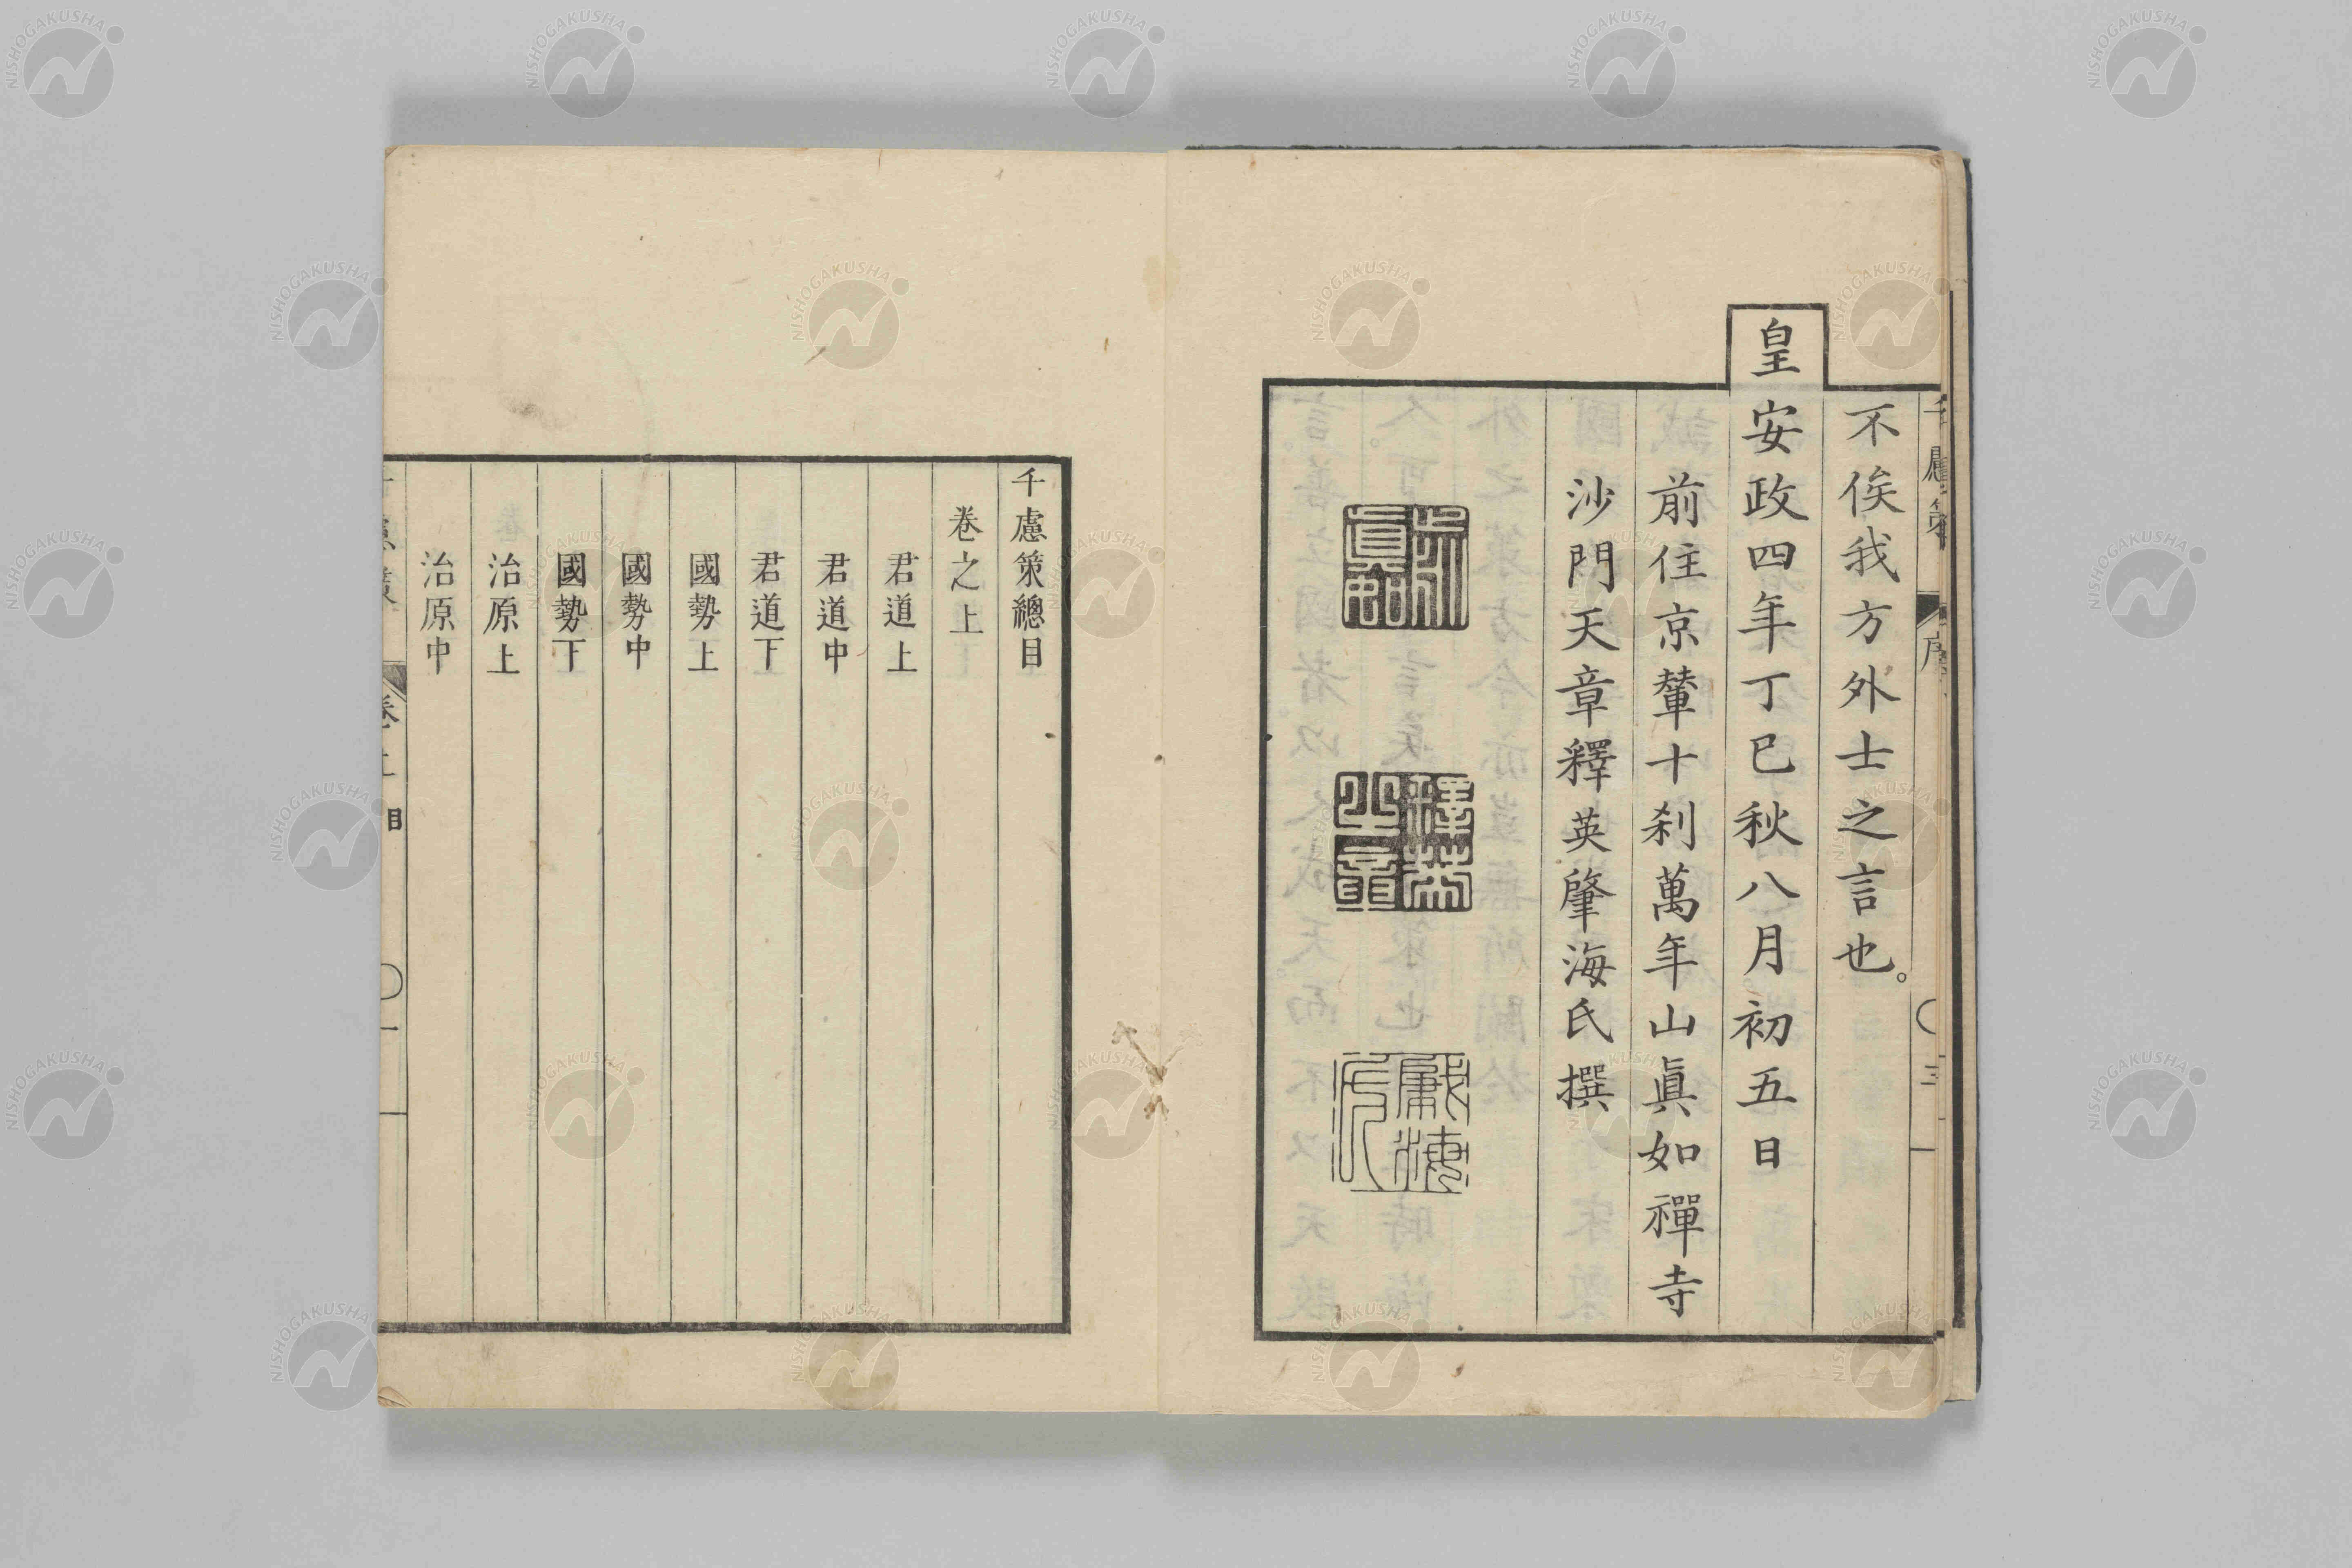 不俟我方外士之言也。
皇安政四年丁巳秋八月初五日
前住京輦十刹萬年山眞如禪寺
沙門天章釋英肇海氏撰
千慮策總目
卷之上
君道上
君道中
君道下
國勢上
國勢中
國勢下
治原上
治原中
NISHOGAKUSHA